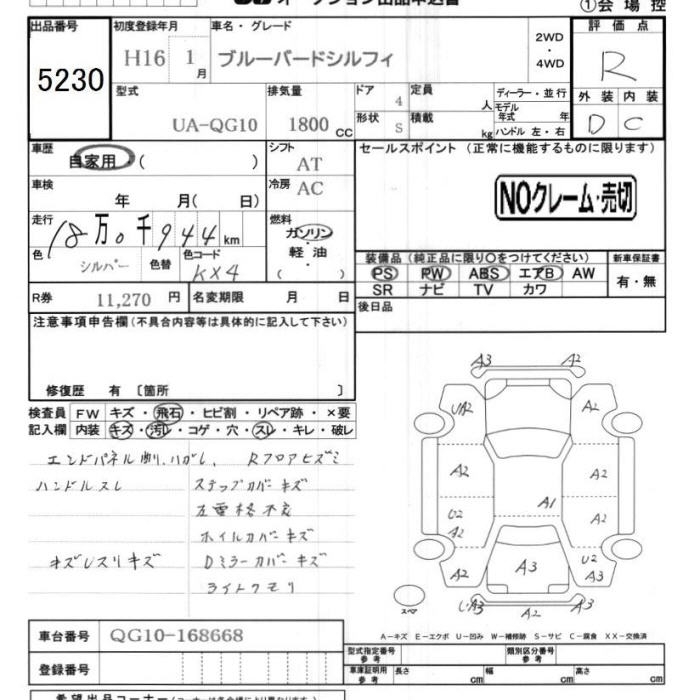 オークション出品申込書 ①会場控
出品番号 初度登録年月 車名・グレード 2WD ・ 4WD 評価点
5230 H16 1月 ブルーバードシルフィ R
型式 排気量 ドア 4 定員 人 ディーラー・並行 外装 内装
UA-QG10 1800 CC 形状 S 積載 kg モデル年式 年 ハンドル 左・右 D C
車歴 自家用 ( ) シフト AT セールスポイント (正常に機能するものに限ります)
車検 年 月( 日) 冷房 AC NOクレーム・売切
走行 18万0千944km 燃料 ガソリン・軽油・( )
色 シルバー 色替 色コード KX4
装備品 (純正品に限り○をつけてください) 新車保証書
PS PW ABS エアB AW 有・無
SR ナビ TV カワ
R券 11,270 円 名変期限 月 日 後日品
注意事項申告欄 (不具合内容等は具体的に記入して下さい)
修復歴 有 〔箇所 〕
検査員 FW キズ・飛石・ヒビ割・リペア跡・×要
記入欄 内装 キズ・汚レ・コゲ・穴・スレ・キレ・破レ
エンドパネル凹、ハガレ、 Rフロアヒズミ
ハンドルスレ ステップカバーキズ
左電格不良
ホイルカバーキズ
キズレスリキズ Dミラーカバーキズ
ライトクモリ
A3 A2
UA2 A2
A2 A2
A1
U2 A2 A2
A2 A3 U2 A3
スペア UA3 A2 A3
A-キズ E-エクボ U-凹み W-補修跡 S-サビ C-腐食 XX-交換済
車台番号 QG10-168668
登録番号
型式指定番号 参考 類別区分番号 参考
車庫証明用 参考 長さ cm 幅 cm 高さ cm
希望出品コーナー